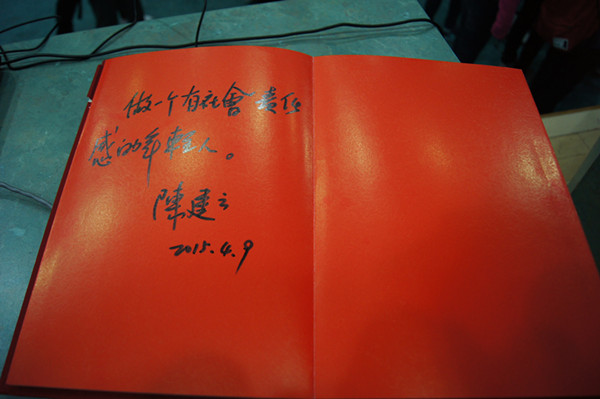 做一个有社會責任
感的年輕人。
陳建云
2015.4.9